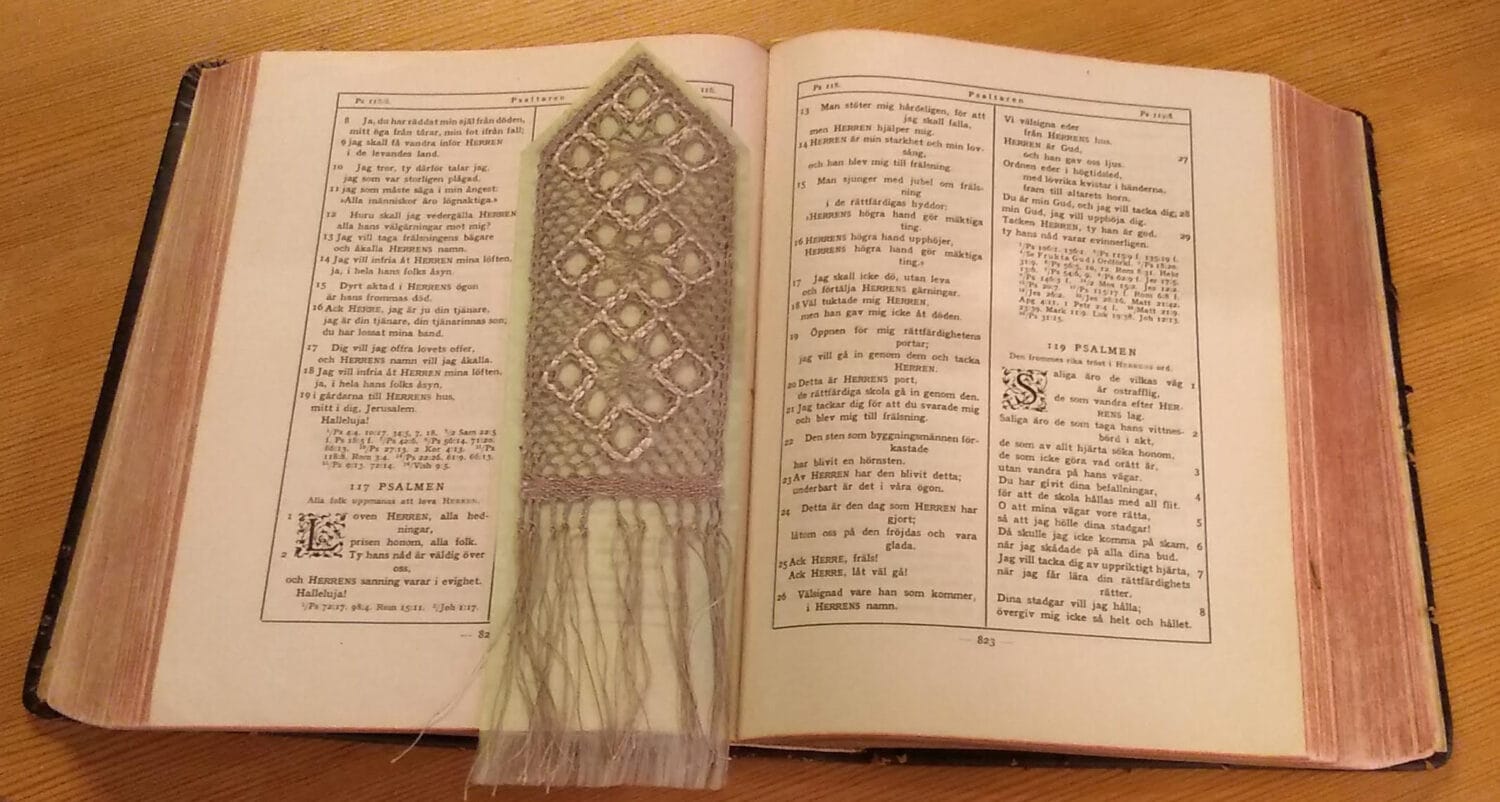 Ps 116:8.
Psaltaren
118.
8 Ja, du har räddat min själ från döden,
mitt öga från tårar, min fot ifrån fall;
9 jag skall få vandra inför HERREN
i de levandes land.
10 Jag tror, ty därför talar jag,
jag som var storligen plågad,
11 jag som måste säga i min ångest:
»Alla människor äro lögnaktiga.»
12 Huru skall jag vedergälla HERREN
alla hans välgärningar mot mig?
13 Jag vill taga frälsningens bägare
och åkalla HERRENS namn.
14 Jag vill infria åt HERREN mina löften,
ja, i hela hans folks åsyn.
15 Dyrt aktad i HERRENS ögon
är hans frommas död.
16 Ack HERRE, jag är ju din tjänare,
jag är din tjänare, din tjänarinnas son;
du har lossat mina band.
17 Dig vill jag offra lovets offer,
och HERRENS namn vill jag åkalla.
18 Jag vill infria åt HERREN mina löften,
ja, i hela hans folks åsyn,
19 i gårdarna till HERRENS hus,
mitt i dig, Jerusalem.
Halleluja!
117 PSALMEN
Alla folk uppmanas att lova HERREN.
1 Loven HERREN, alla hed-
ningar,
prisen honom, alla folk.
2 Ty hans nåd är väldig över
oss,
och HERRENS sanning varar i evighet.
Halleluja!
¹/Ps 72:17. 98:4. Rom 15:11. ²/Joh 1:17.
— 82
Ps 118.
Psaltaren
Ps 119:8
13 Man stöter mig hårdeligen, för att
jag skall falla,
men HERREN hjälper mig.
14 HERREN är min starkhet och min lov-
sång,
och han blev mig till frälsning.
15 Man sjunger med jubel om fräls-
ning
i de rättfärdigas hyddor;
»HERRENS högra hand gör mäktiga
ting.
16 HERRENS högra hand upphöjer,
HERRENS högra hand gör mäktiga
ting.»
17 Jag skall icke dö, utan leva
och förtälja HERRENS gärningar.
18 Väl tuktade mig HERREN,
men han gav mig icke åt döden.
19 Öppnen för mig rättfärdighetens
portar;
jag vill gå in genom dem och tacka
HERREN.
20 Detta är HERRENS port,
de rättfärdiga skola gå in genom den.
21 Jag tackar dig för att du svarade mig
och blev mig till frälsning.
22 Den sten som byggningsmännen för-
kastade
har blivit en hörnsten.
23 Av HERREN har den blivit detta;
underbart är det i våra ögon.
24 Detta är den dag som HERREN har
gjort;
låtom oss på den fröjdas och vara
glada.
25 Ack HERRE, fräls!
Ack HERRE, låt väl gå!
26 Välsignad vare han som kommer,
i HERRENS namn.
Vi välsigna eder
från HERRENS hus.
HERREN är Gud, 27
och han gav oss ljus.
Ordnen eder i högtidsled,
med lövrika kvistar i händerna,
fram till altarets horn.
Du är min Gud, och jag vill tacka dig; 28
min Gud, jag vill upphöja dig.
Tacken HERREN, ty han är god, 29
ty hans nåd varar evinnerligen.
119 PSALMEN
Den frommes rika tröst i HERRENS ord.
Saliga äro de vilkas väg 1
är ostrafflig,
de som vandra efter HER-
RENS lag.
Saliga äro de som taga hans vittnes- 2
börd i akt,
de som av allt hjärta söka honom,
de som icke göra vad orätt är, 3
utan vandra på hans vägar.
Du har givit dina befallningar, 4
för att de skola hållas med all flit.
O att mina vägar vore rätta, 5
så att jag hölle dina stadgar!
Då skulle jag icke komma på skam, 6
när jag skådade på alla dina bud.
Jag vill tacka dig av uppriktigt hjärta, 7
när jag får lära din rättfärdighets
rätter.
Dina stadgar vill jag hålla; 8
övergiv mig icke så helt och hållet.
— 823 —